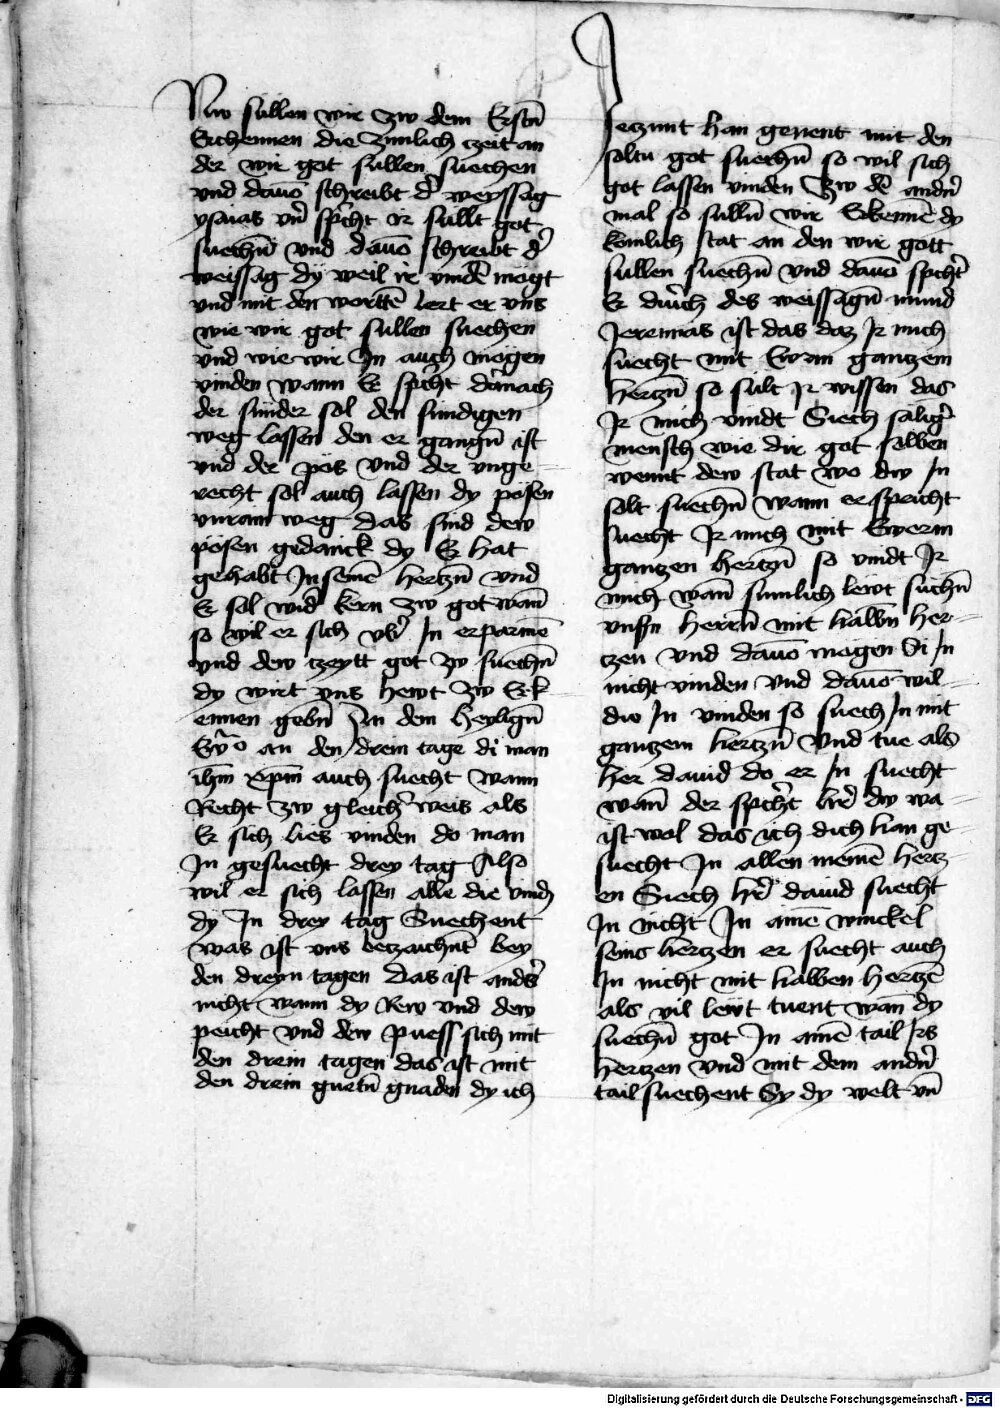 Nw süllen wir zw dem Erstn̄
Erchennen die zimlich czeit an
der wir got sullen suechen
vnd dauō schreibt d' weyssag
ysaias vn̄ spricht ir süllt got
suechn̄ vnd dauō schreibt d'
weissag dy weil ir vindē mügt
vnd mit den worttē lert er vns
wie wir got sullen suechen
vnd wie wir In auch mögen
vinden wann Er spricht darnach
der sunder sol den sündigen
weg lassen den er gangn̄ ist
vnd der pös vnd der vnge-
recht sol auch lassen dy pösen
vnrain weg das sind dew
pösen gedanck dy Er hat
gehabt In seinē hertzn̄ vnd
Er sol wid' kern zw got wan̄
so wil er sich vb' In erparmē
vnd dew czeytt got zw suechn̄
dy wirt vns hewt zw Erk-
ennen gebn̄ In dem heylign̄
an den drein tage di man
ihm xpm auch suecht wann
Recht zw gleich' weis als
Er sich lies vinden do man
In gesuecht drey tag Also
wil er sich lassen alle die vindn̄
dy In drey tag Suechent
was ist vns betzaichnt bey
den dreyn tagen Das ist ands'
nicht wann dy Rew vnd dew
peicht vnd dew puess sich mit
den drein tagen das ist mit
den drein guetn̄ gnaden dy ich
Ieczunt han genent mit den
soltu got suechn̄ so wil sich
got lassen vinden Zw dē andn̄
mal so sulln̄ wir Erkennē dy
kömlich stat an den wir gott
sullen suechn̄ vnd dauō spricht
Er durch des weissagn̄ mund
Jeremias ist das daz Ir mich
suecht mit Ewrm gantzem
hertzn̄ so sült Ir wissen das
Ir mich vindt Siech sälig'
mensch wie dir got selben
nennt dew stat wo dw In
solt suechn̄ wann er spricht
suecht Ir mich mit Ewerm
gantzen hertzn̄ so vindt Ir
mich wan̄ sümlich lewt suchn̄
vnsn̄ herrn̄ mit halbn̄ her-
tzen vnd dauō mögen Si In
nicht vinden vnd dauō wil-
dw In vinden so suech In mit
gantzem hertzn̄ Vnd tue als
her dauid do er In suecht
wan̄ der spricht hr̄ dw wa-
ist wol das ich dich han ge-
suecht In allen meinē hertz-
en Siech hr̄ dauid suecht
In nicht In ainē winckel
seins hertzen er suecht auch
In nicht mit halben hertzē
als vil lewt tuent wan̄ dy
suechn̄ got In ainē tail Irs
hertzen vnd mit dem andn̄
tail suechent Sy dy welt vn̄
Digitalisierung gefördert durch die Deutsche Forschungsgemeinschaft - DFG